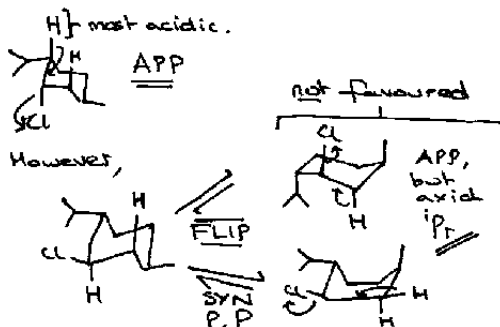 H}- most acidic.
H
APP
Cl
not favoured
However,
Cl
APP,
but
axial
iPr
H
H
FLIP
Cl
H
SYN
P.P
Cl
H
H